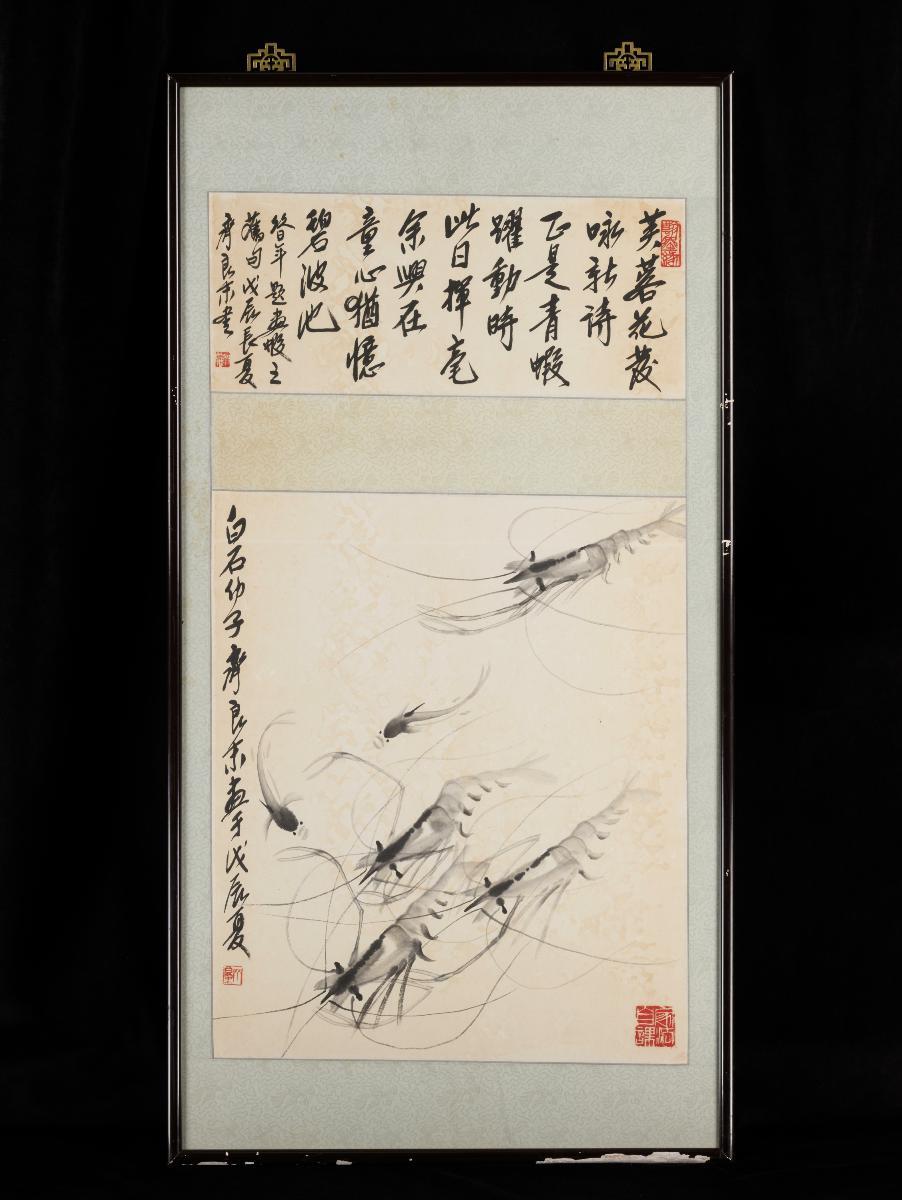 芙蓉花發
咏新詩
正是青蝦
躍動時
此日揮毫
余興在
童心猶憶
碧波池
昝年題畫蝦之
舊句戊辰長夏
齊良末書
白石幼子齊良末畫于戊辰夏